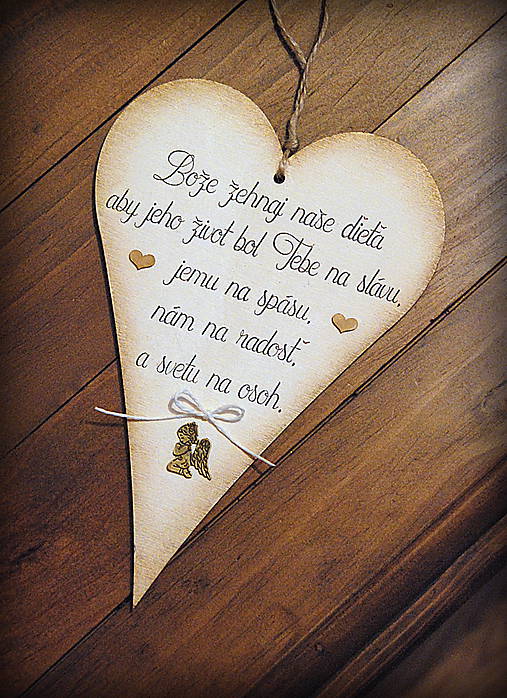 Bože žehnaj naše dieťa
aby jeho život bol Tebe na slávu,
jemu na spásu,
nám na radosť,
a svetu na osoh.